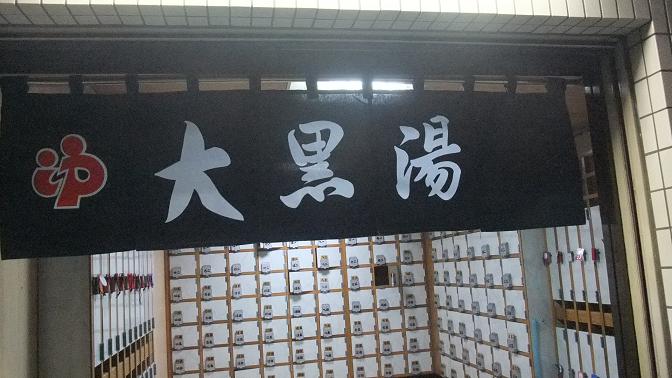 ゆ 大黒湯